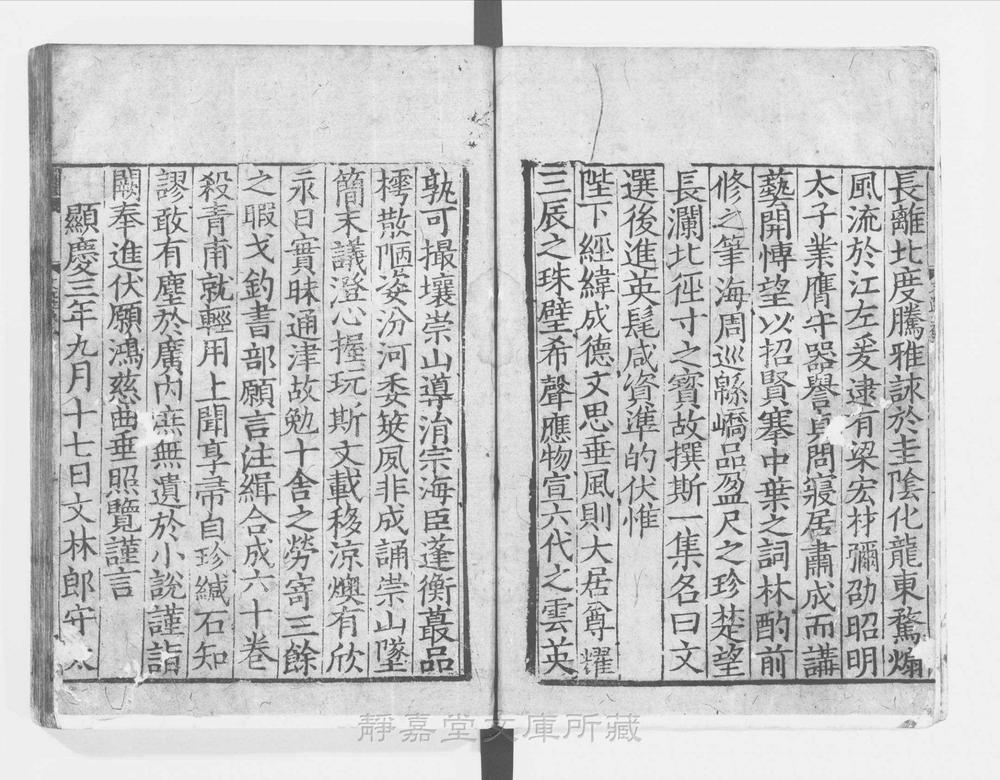 長離北度騰雅詠於圭陰化龍東騖煽
風流於江左爰逮有梁宏材彌劭昭明
太子業膺守器譽貞問寢居肅成而講
藝開博望以招賢搴中葉之詞林酌前
修之筆海周巡緜嶠品盈尺之珍楚望
長瀾北徑寸之寳故撰斯一集名曰文
選後進英髦咸資準的伏惟
陛下經緯成德文思垂風則大居尊耀
三辰之珠璧希聲應物宣六代之雲英
孰可撮壤崇山導涓宗海臣蓬衡蕞品
樗散陋姿汾河委筴夙非成誦崇山墜
簡末議澄心握玩斯文載移涼燠有欣
永日實昧通津故勉十舍之勞寄三餘
之暇弋釣書部願言注緝合成六十卷
殺青甫就輕用上聞享帚自珍緘石知
謬敢有塵於廣内庶無遺於小說謹詣
闕奉進伏願鴻慈曲垂照覽謹言
顯慶三年九月十七日文林郎守太
靜嘉堂文庫所藏